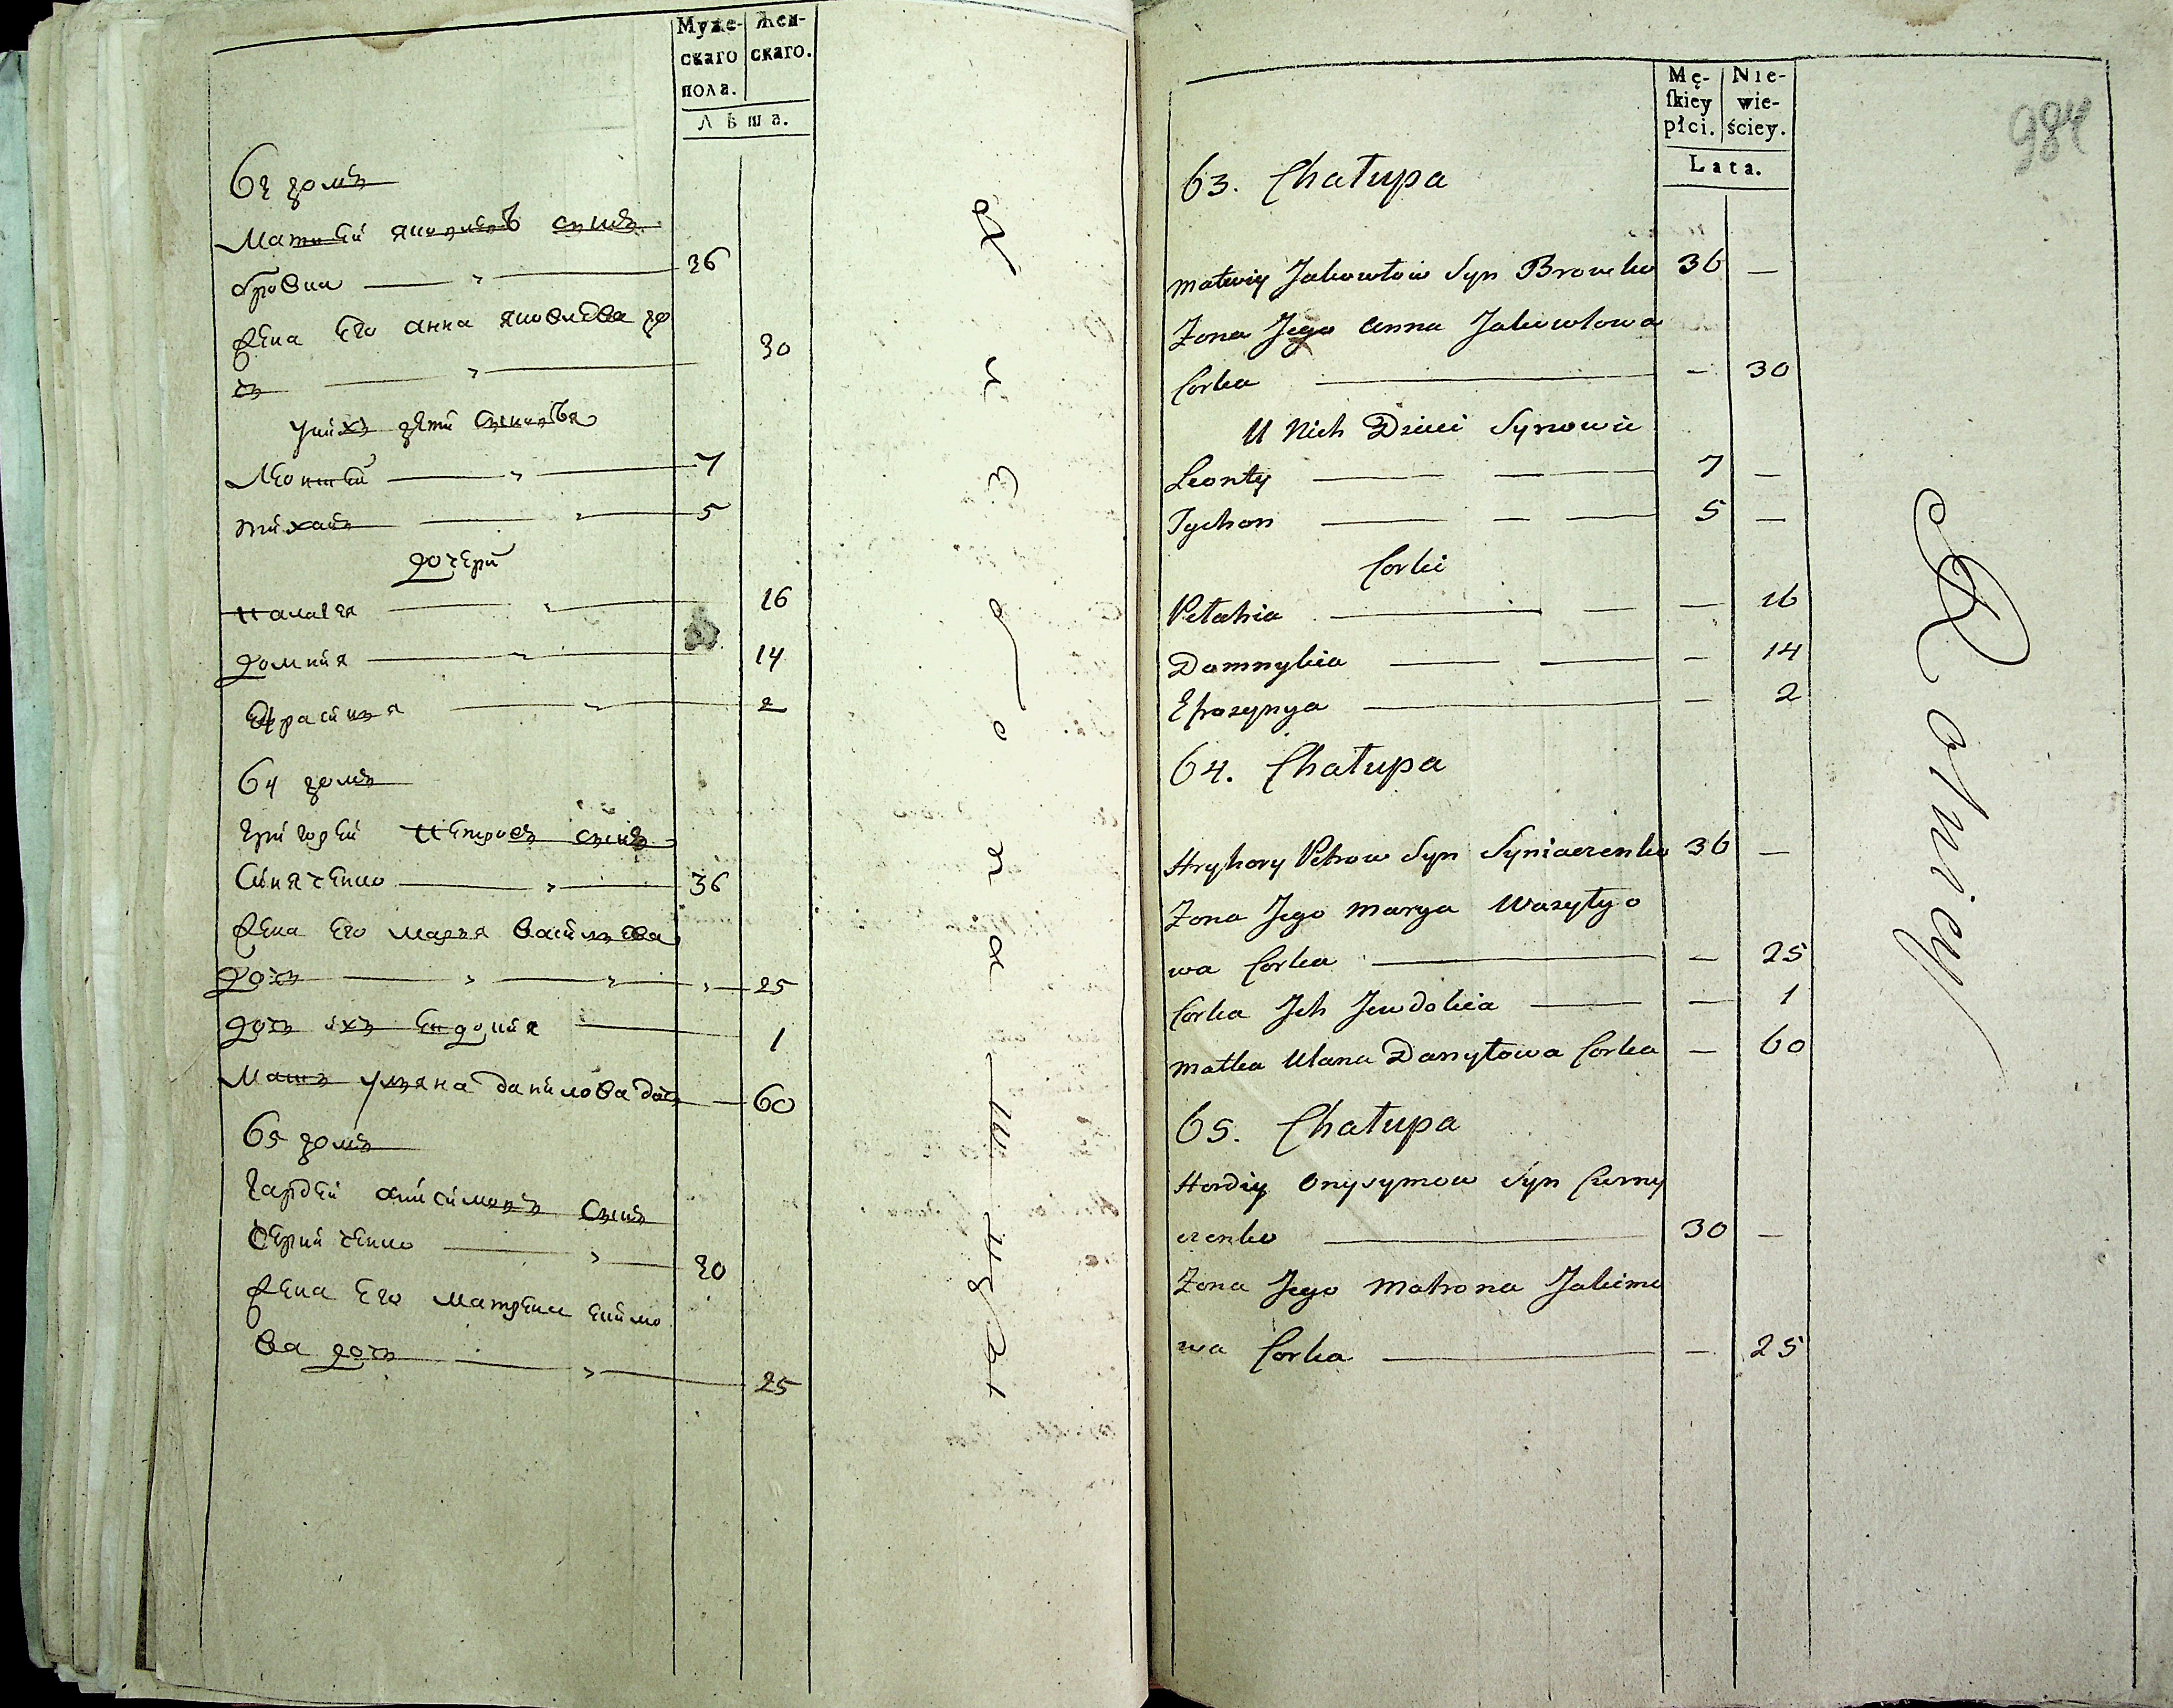 Муже-
скаго
пола.
Жен-
скаго.
Лѣта.
63 домъ
Матвей яковлевъ сынъ
бровка 36
жена Его анна яковлева до
чъ 30
у них дети сыновья
Леонтей 7
тихонъ 5
дочери
палагея 16
домния 14
Ефрасиния 2
64 домъ
григорей Петровъ сынъ
Синяченко 36
жена Его марья васильева
дочъ 25
дочъ ихъ Евдокия 1
Мать ульяна данилова дочъ 60
65 домъ
гардей анисимовъ сынъ
жена Его матрена
ва дочъ 25
Mę-
ſkiey
płci.
Nie-
wie-
ściey.
Lata.
984
63. Chałupa
Matwiy Jakowłow Syn Browko 36 —
Zona Jego Anna Jakowłowa
Corka — 30
U Nich Dzieci Synowie
Leonty 7 —
Tychon 5 —
Corki
Pelahia — 16
Domnykia — 14
Efrozynya — 2
64. Chałupa
Hryhory Petrow Syn Syniaczenko 36 —
Zona Jego Marya Wasyłyo
wa Corka — 25
Corka Jch Jewdokia — 1
Matka Ulana Danyłowa Corka — 60
65. Chałupa
Hordiy Onysymow Syn Czerny
czenko 30 —
Zona Jego Matrona Jakimo
wa Corka — 25
Rolnicy